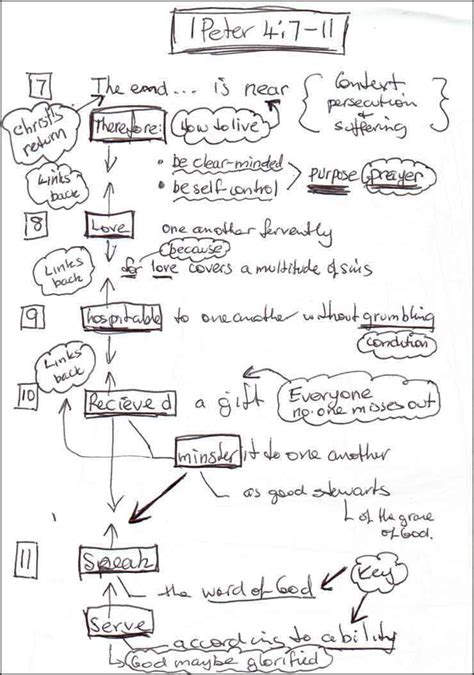 1 Peter 4:7-11
7 The end... is near { Context persecution & suffering }
christ's return
Therefore: How to live
Links back
• be clear-minded
• be self-control > purpose prayer
8 Love one another fervently
because
Links back
for love covers a multitude of sins
9 hospitable to one another without grumbling
condition
Links back
10 Recieved a gift
Everyone
no one misses out
minster it to one another
as good stewarts
of the grace of God.
11 Speak
the word of God
Key
Serve
according to ability
God maybe glorified